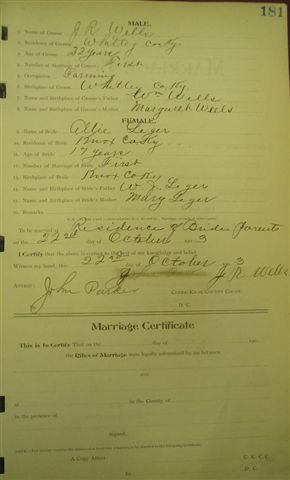 181
MALE.
1. Name of Groom J. R. Wells
2. Residence of Groom Whitley Co Ky.
3. Age of Groom 22 years
4. Number of Marriage of Groom First
5. Occupation Farming
6. Birthplace of Groom Whitley Co Ky.
7. Name and Birthplace of Groom's Father Wm Wells
8. Name and Birthplace of Groom's Mother Margaret Wells
FEMALE.
9. Name of Bride Allie Leger
10. Residence of Bride Knox Co Ky
11. Age of Bride 17 years
12. Number of Marriage of Bride First
13. Birthplace of Bride Knox Co Ky
14. Name and Birthplace of Bride's Father W. J. Leger
15. Name and Birthplace of Bride's Mother Mary Leger
16. Remarks
To be married at Residence of Brides Parents
on the 22nd day of October 190 3
I Certify that the above is correct to the best of my knowledge and belief.
Witness my hand, this 22nd day of October 3
J R Wells
Attest:
John Parker
Clerk Knox County Court.
D. C.
Marriage Certificate
This is to Certify That on the day of 190
the Rites of Marriage were legally solemnized by me between
and
at in the County of
in the presence of
Signed,
A Copy Attest C. K. C. C.
By D. C.